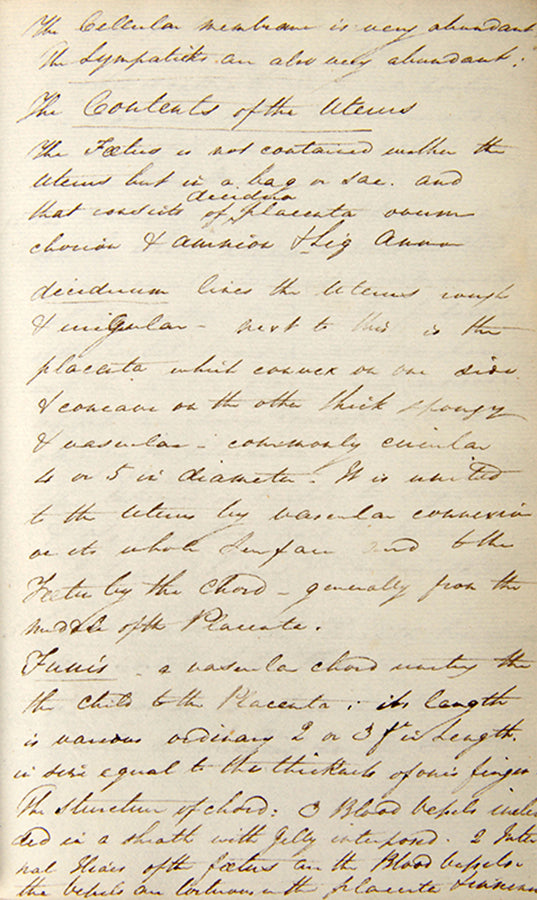 The Cellular membrane is very abundant
The Sympatick are also very abundant.
The Contents of the Uterus
The Fœtus is not contained within the
Uterus but in a bag or sac. and
decidua
that consists of placenta ovum
chorion & amnion & Liq Amn
deciduum lines the Uterus rough
& irrigular - next to this is the
placenta which convex on one side
& concave on the other thick spongy
& vascular - commonly circular
4 or 5 in diameter. It is united
to the Uterus by vascular connexion
on its whole Surface and to the
Fœtus by the Chord - generally from the
middle of the Placenta.
Funis - a vascular chord uniting the
the child to the Placenta; its length
is various ordinary 2 or 3 ft in Length.
in size equal to the thickness of ones finger
The structure of chord: 3 Blood vessels inclu
ded in a sheath with Jelly interposed. 2 Inter
nal Iliacs of the fœtus are the Blood vessels
the vessels are tortuous in the placenta